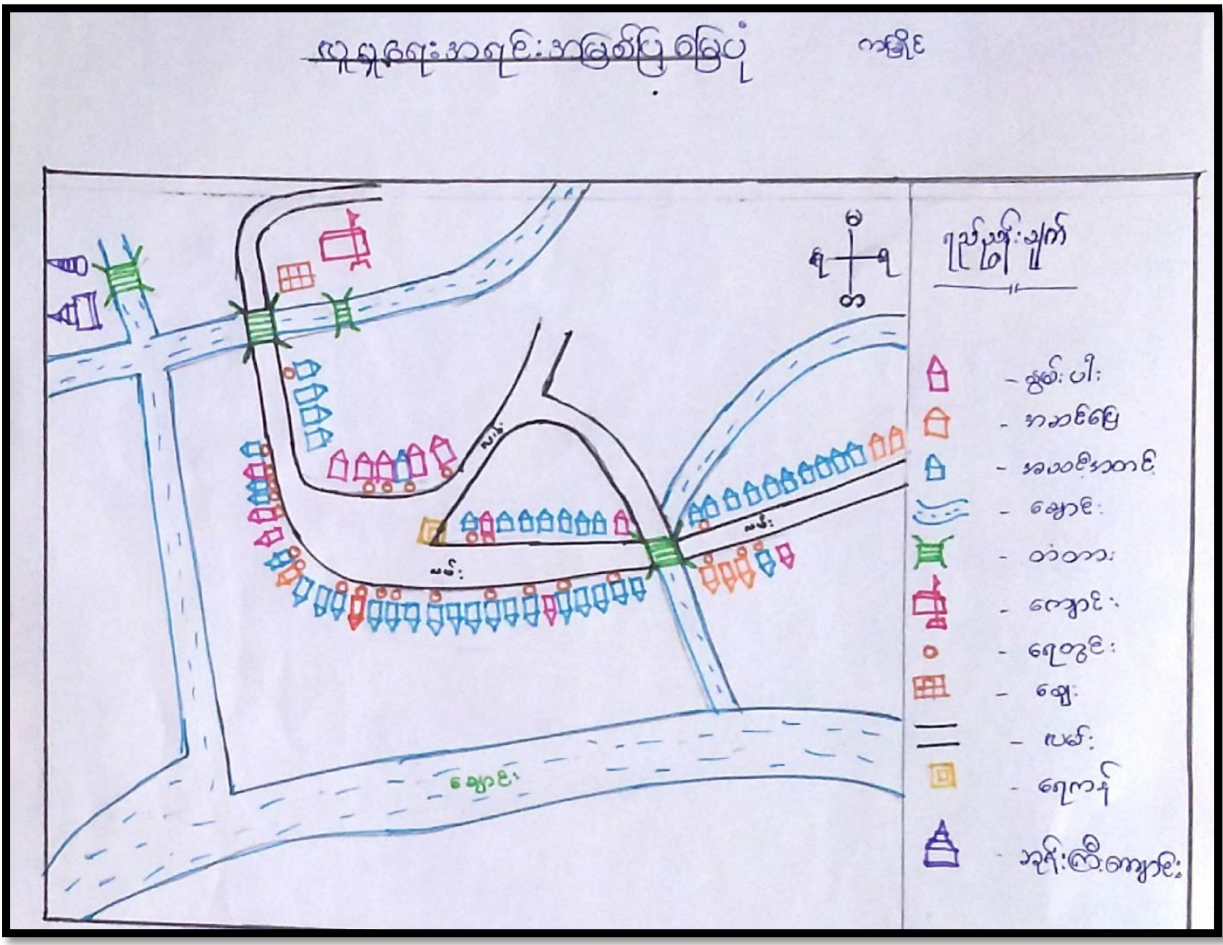 လူမှုရေးအရင်းအမြစ်ပြမြေပုံ
ကမြိုင်
မ
ရ
တ
ရည်ညွှန်းချက်
- နွမ်းပါး
- အဆင်ပြေ
- အသင့်အတင့်
- ချောင်း
- တံတား
- ကျောင်း
- ရေတွင်း
- ဈေး
- လမ်း
- ရေကန်
- ဘုန်းကြီးကျောင်း
လမ်း
လမ်း
လမ်း
ချောင်း